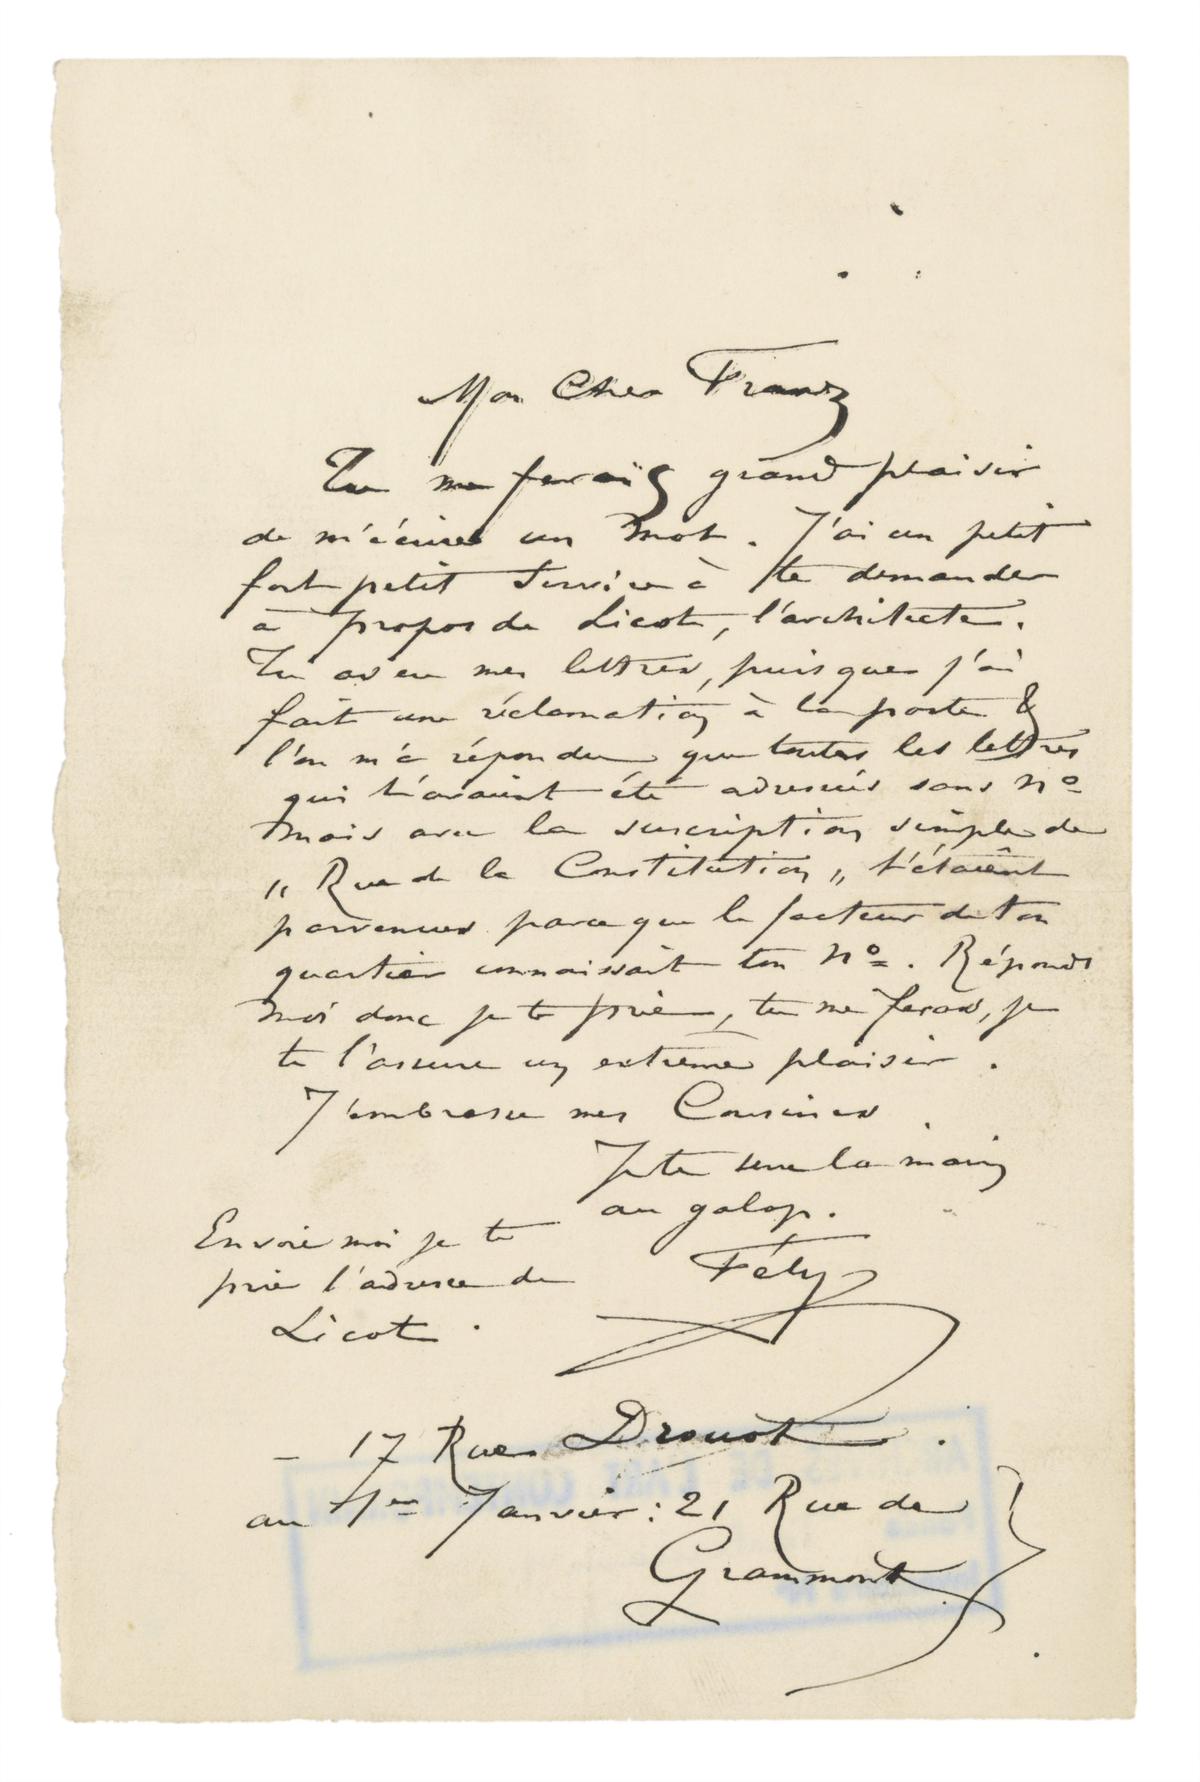 Mon Cher Franz
Tu me ferais grand plaisir
de m'écrire un mot. J'ai un petit
fort petit service à te demander
à propos de Licot, l'architecte.
Tu as eu mes lettres, puisque j'ai
fait une réclamation à la poste &
l'on m'a répondu que toutes les lettres
qui t'avaient été adressées sans nº
mais avec la suscription simple de
„ Rue de la Constitution „ t'étaient
parvenues parce que le facteur de ton
quartier connaissait ton nº. Réponds
moi donc je te prie, tu me feras, je
te l'assure un extrême plaisir.
J'embrasse mes Cousines
Je te serre la main
au galop.
Fély
Envoie moi je te
prie l'adresse de
Licot.
– 17 Rue Drouot.
au 1er Janvier: 21 Rue de
Grammont
ARCHIVES DE L'ART CONTEMPORAIN